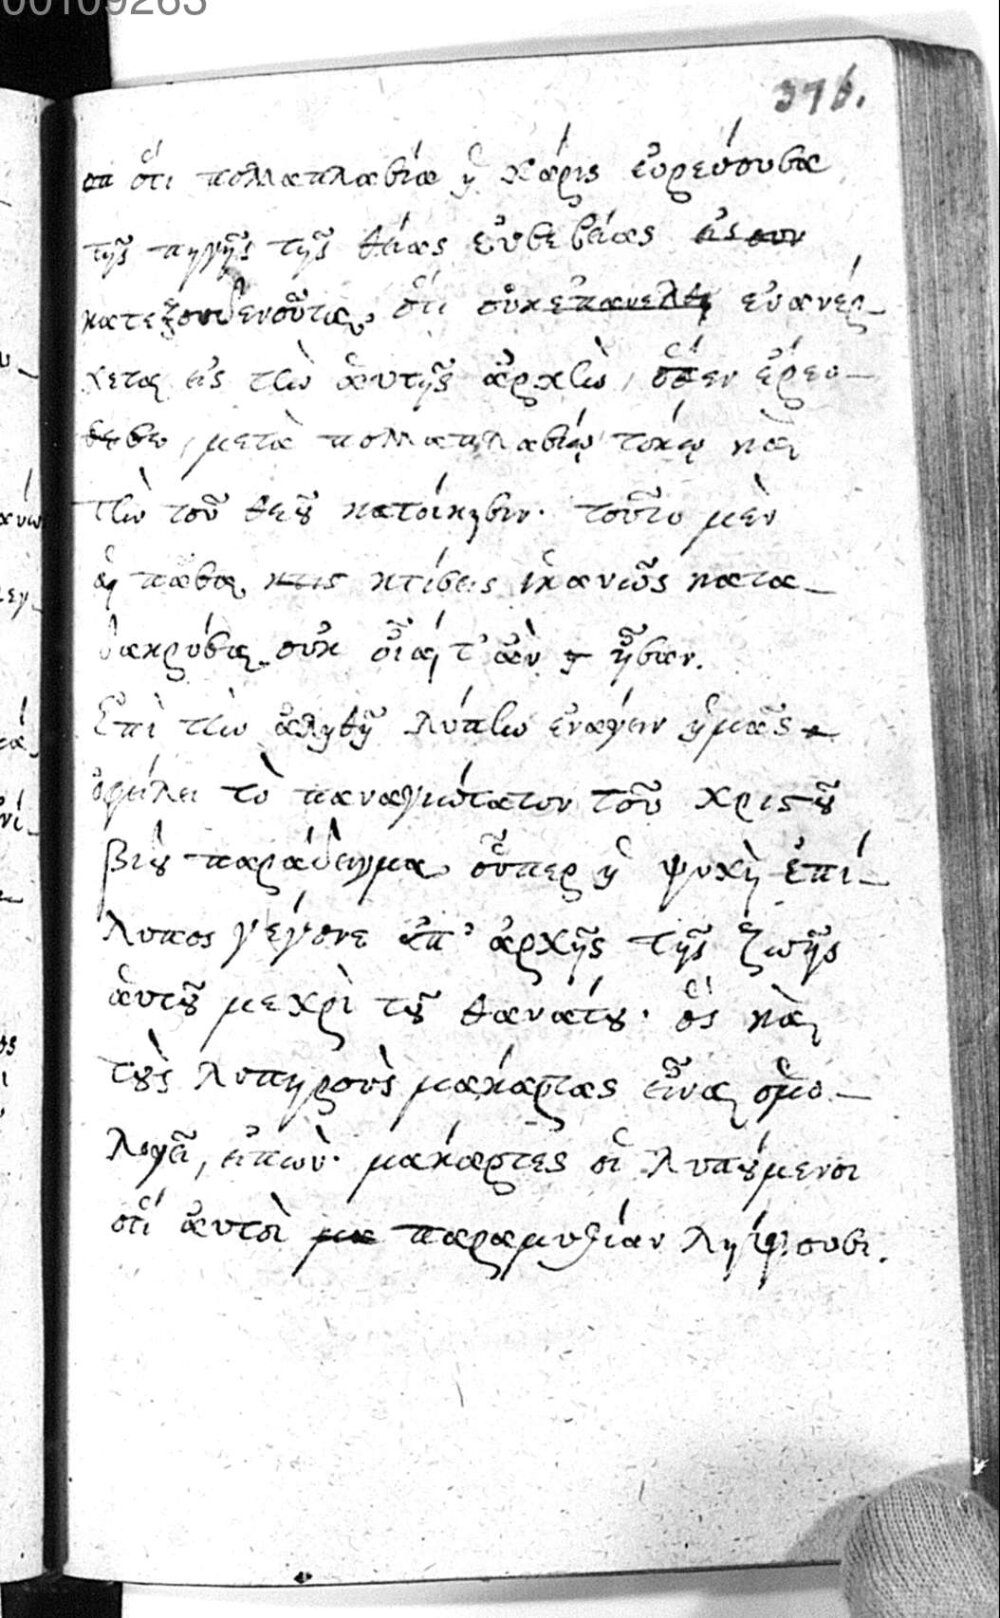 00109263
376.
ὅτι πολλαπλασία ἡ χάρις εὑρεύουσα
τῆς πηγῆς τῆς θείας εὐσεβείας εἰς συν
κατεξουδενοῦται, ὅτι οὐκ ἐπανελθ ἐυανέρ-
χεται εἰς τὴν αὐτῆς ἀρχὴν, ὅθεν ἐρευ-
, μετὰ πολλαπλασίῳ τόκῳ καὶ
τὴν τοῦ θεοῦ κατοίκησιν. τοῦτο μὲν
ἁι πᾶσαι κτις κτίσεις ἱκανῶς κατα-
δακρύσαι οὐκ οἷαί τ' ἂν ἦσαν.
Ἐπὶ τὴν ἀληθῆ λύπην ἐνάγειν ἡμᾶς
ὀφείλει τὸ παναγιώτατον τοῦ χριστοῦ
βίου παράδειγμα οὗπερ ἡ ψυχὴ ἐπί-
λυπος γέγονε ἀπ' ἀρχῆς τῆς ζωῆς
ἁυτοῦ μεχρὶ τοῦ θανάτου. ὅς καὶ
τοὺς λυπηροὺς μακαρίας εἶναι ὁμο-
λογεῖ, εἰπὼν. μακάριες οἱ λυπούμενοι
ὅτι ἀυτοὶ μα παραμυθίαν λήψουσι.